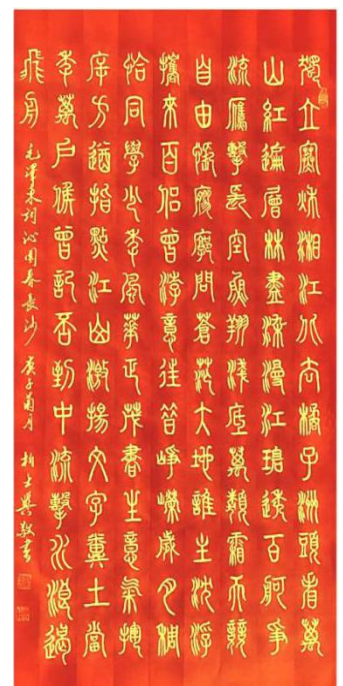 獨立寒秋湘江北去橘子洲頭看萬
山紅遍層林盡染漫江碧透百舸爭
流鷹擊長空魚翔淺底萬類霜天競
自由悵寥廓問蒼茫大地誰主沈浮
攜來百侶曾游憶往昔崢嶸歲月稠
恰同學少年風華正茂書生意氣揮
斥方遒指點江山激揚文字糞土當
年萬戶侯曾記否到中流擊水浪遏
飛舟 毛澤東詞沁園春長沙 庚子菊月